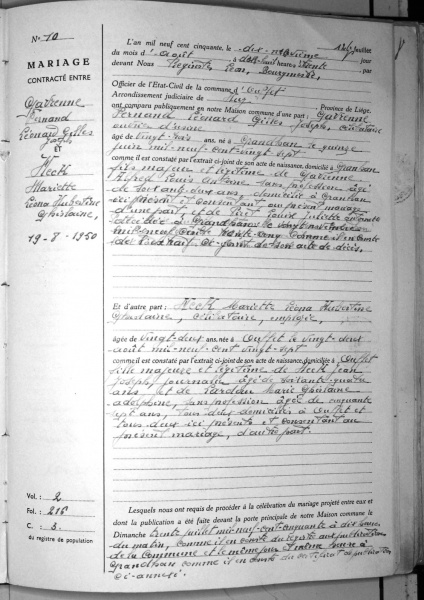 N° 10
MARIAGE
CONTRACTÉ ENTRE
Garienne
Fernand
Léonard Gilles
Joseph
ET
Heck
Mariette
Léona Hubertine
Ghislaine,
19-8-1950
Vol. : 2
Fol. : 216
C. : 3.
du registre de population
L'an mil neuf cent cinquante, le dix-neuvième jour
du mois d'août à dix-huit heures trente
devant Nous Léon, Bourgmestre, par
Officier de l'Etat-Civil de la commune d'Ouffet
Arrondissement judiciaire de Huy, Province de Liège,
ont comparu publiquement en notre Maison commune d'une part : Garienne
Fernand Léonard Gilles Joseph, célibataire
ouvrier d'usine
âgé de vingt-trois ans, né à Grandhan le quinze
juin mil-neuf-cent-vingt-sept
comme il est constaté par l'extrait ci-joint de son acte de naissance, domicilié à Grandhan
fils majeur et légitime de Garienne
Alfred Louis sans profession âgé
de soixante-deux ans, domicilié à Grandhan
ici présent et consentant au présent mariage
d'une part, et de Louise Juliette
décédée à Grandhan le vingt novembre
mil-neuf-cent trente-cinq comme il en conste
par l'extrait ci-joint de son acte de décès.
Et d'autre part : Heck Mariette Léona Hubertine
Ghislaine, célibataire, employée,
âgée de vingt-deux ans, née à Ouffet le vingt-deux
août mil-neuf-cent vingt-sept
comme il est constaté par l'extrait ci-joint de son acte de naissance, domiciliée à Ouffet
fille majeure et légitime de Heck Jean
Joseph, journalier, âgé de soixante-quatre
ans, et de Marie Ghislaine
Adolphine, sans profession âgée de cinquante
sept ans, tous deux domiciliés à Ouffet et
tous deux ici présents et consentant au
présent mariage, d'autre part.
Lesquels nous ont requis de procéder à la célébration du mariage projeté entre eux et
dont la publication a été faite devant la porte principale de notre Maison commune le
Dimanche trente juillet mil-neuf-cent-cinquante à dix heures
du matin, comme il en conste du registre aux publications
de la Commune et le même jour et même heure à
Grandhan comme il en conste du certificat de publication
ci-annexé.